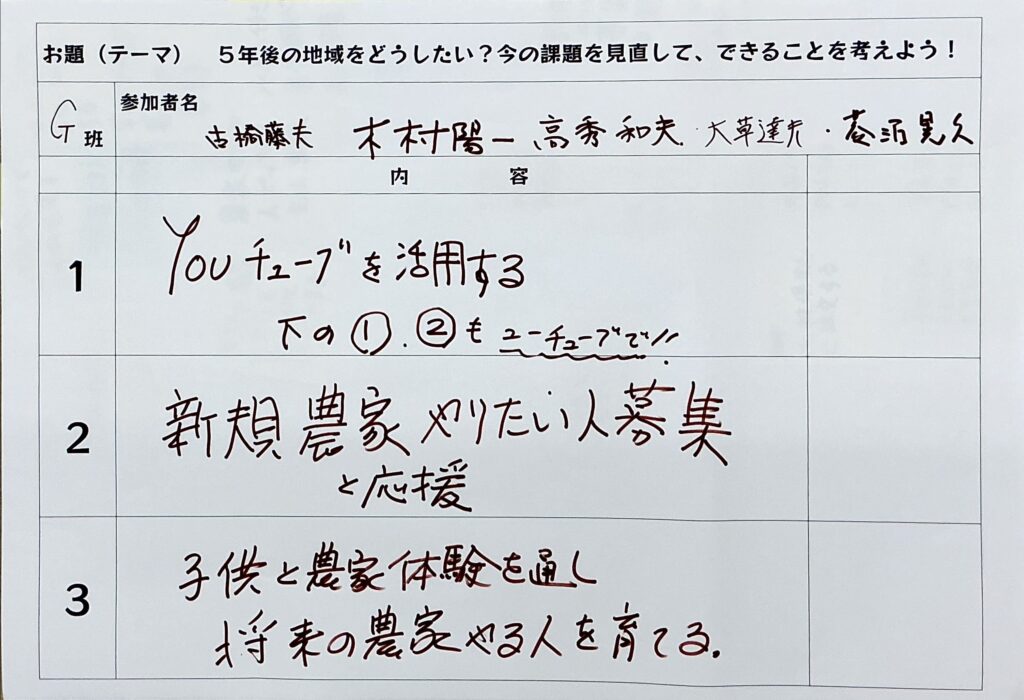 お題（テーマ）　５年後の地域をどうしたい？今の課題を見直して、できることを考えよう！
G班
参加者名
古橋藤夫　木村陽一　高秀和夫．大草達夫・菅沼晃久
内容
1
Youチューブを活用する
下の①．②もユーチューブで!!
2
新規農家やりたい人募集
と応援
3
子供と農家体験を通し
将来の農家やる人を育てる．